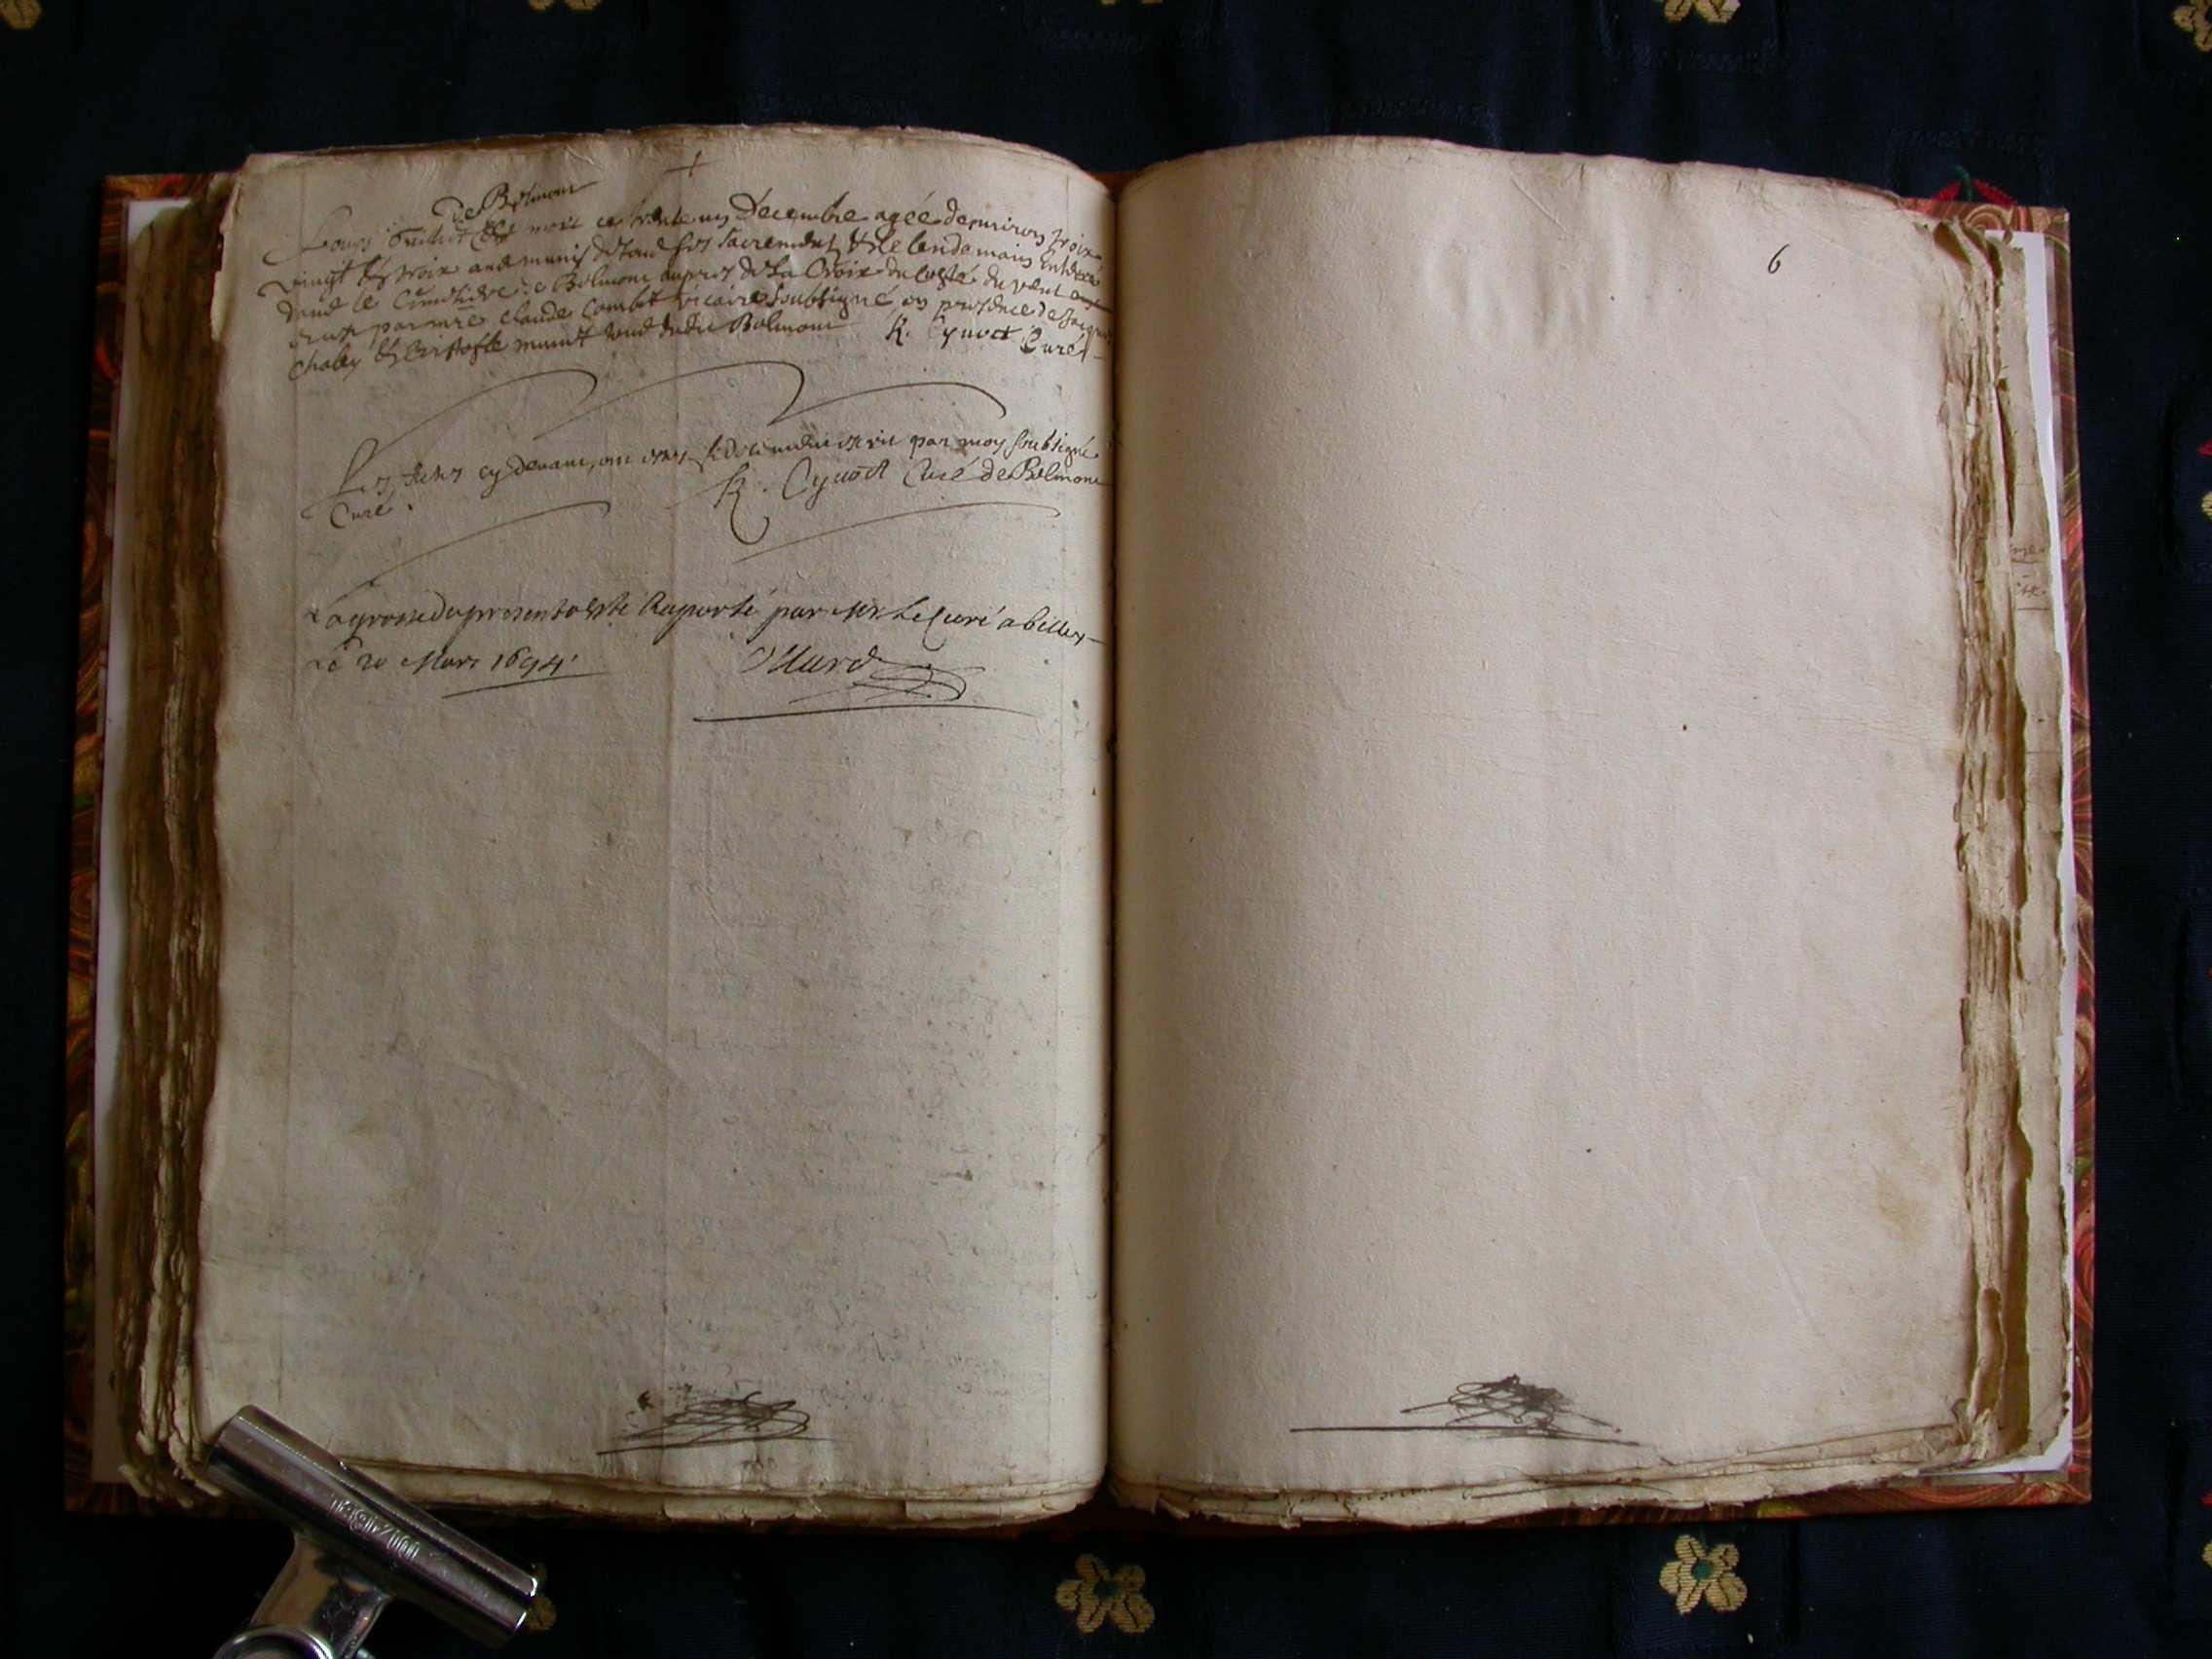 +
de Belmont
Louys est mort ce trente un Décembre agée denviron troix
vingt et troix ans munis de tous ses sacrements et le lendemain enterré
dans le Cimetière de Belmont aupres de La Croix du costé du vent
par mre Claude Combet vicaire soubsigné en presence de Jacques
Chaley et Cristofle tous dudit Belmont R. Cynoct Curé
Les actes cy devant ont estés escrit par moy soubsigné
Curé . R. Cynoct Curé de Belmont
La grosse du present a esté Raporté par Mr Le Curé a belley
Le 20 Mars 1694
6